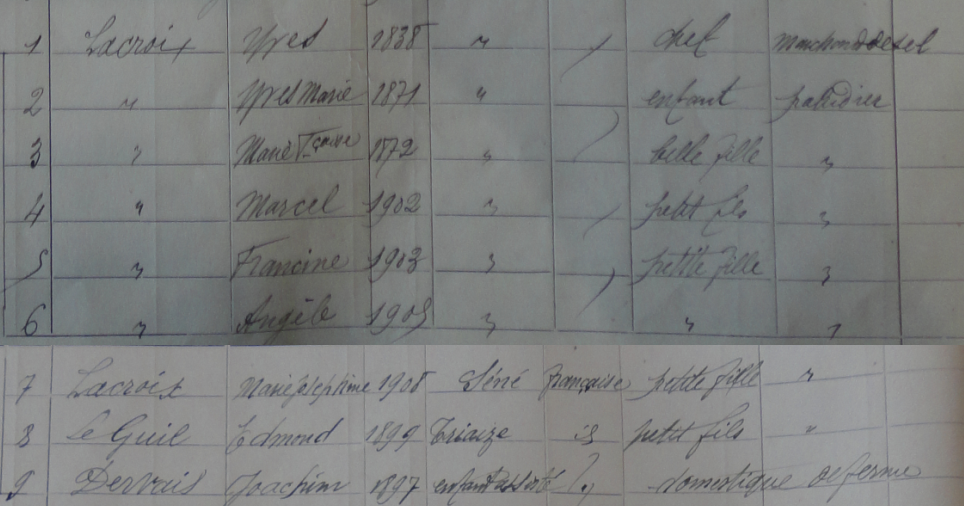 1 Lacroix Yves 1838 " / chef marchand de sel
2 " Yves Marie 1871 " enfant paludier
3 " Marie Fçoise 1872 " belle fille "
4 " Marcel 1902 " petit fils "
5 " Francine 1903 " petite fille "
6 " Angèle 1905 " " "
7 Lacroix Marie Joséphine 1908 Séné Française petite fille "
8 Le Guil Edmond 1899 Triaize is petit fils "
9 Dervais Joachim 1897 enfant assisté " domestique de ferme